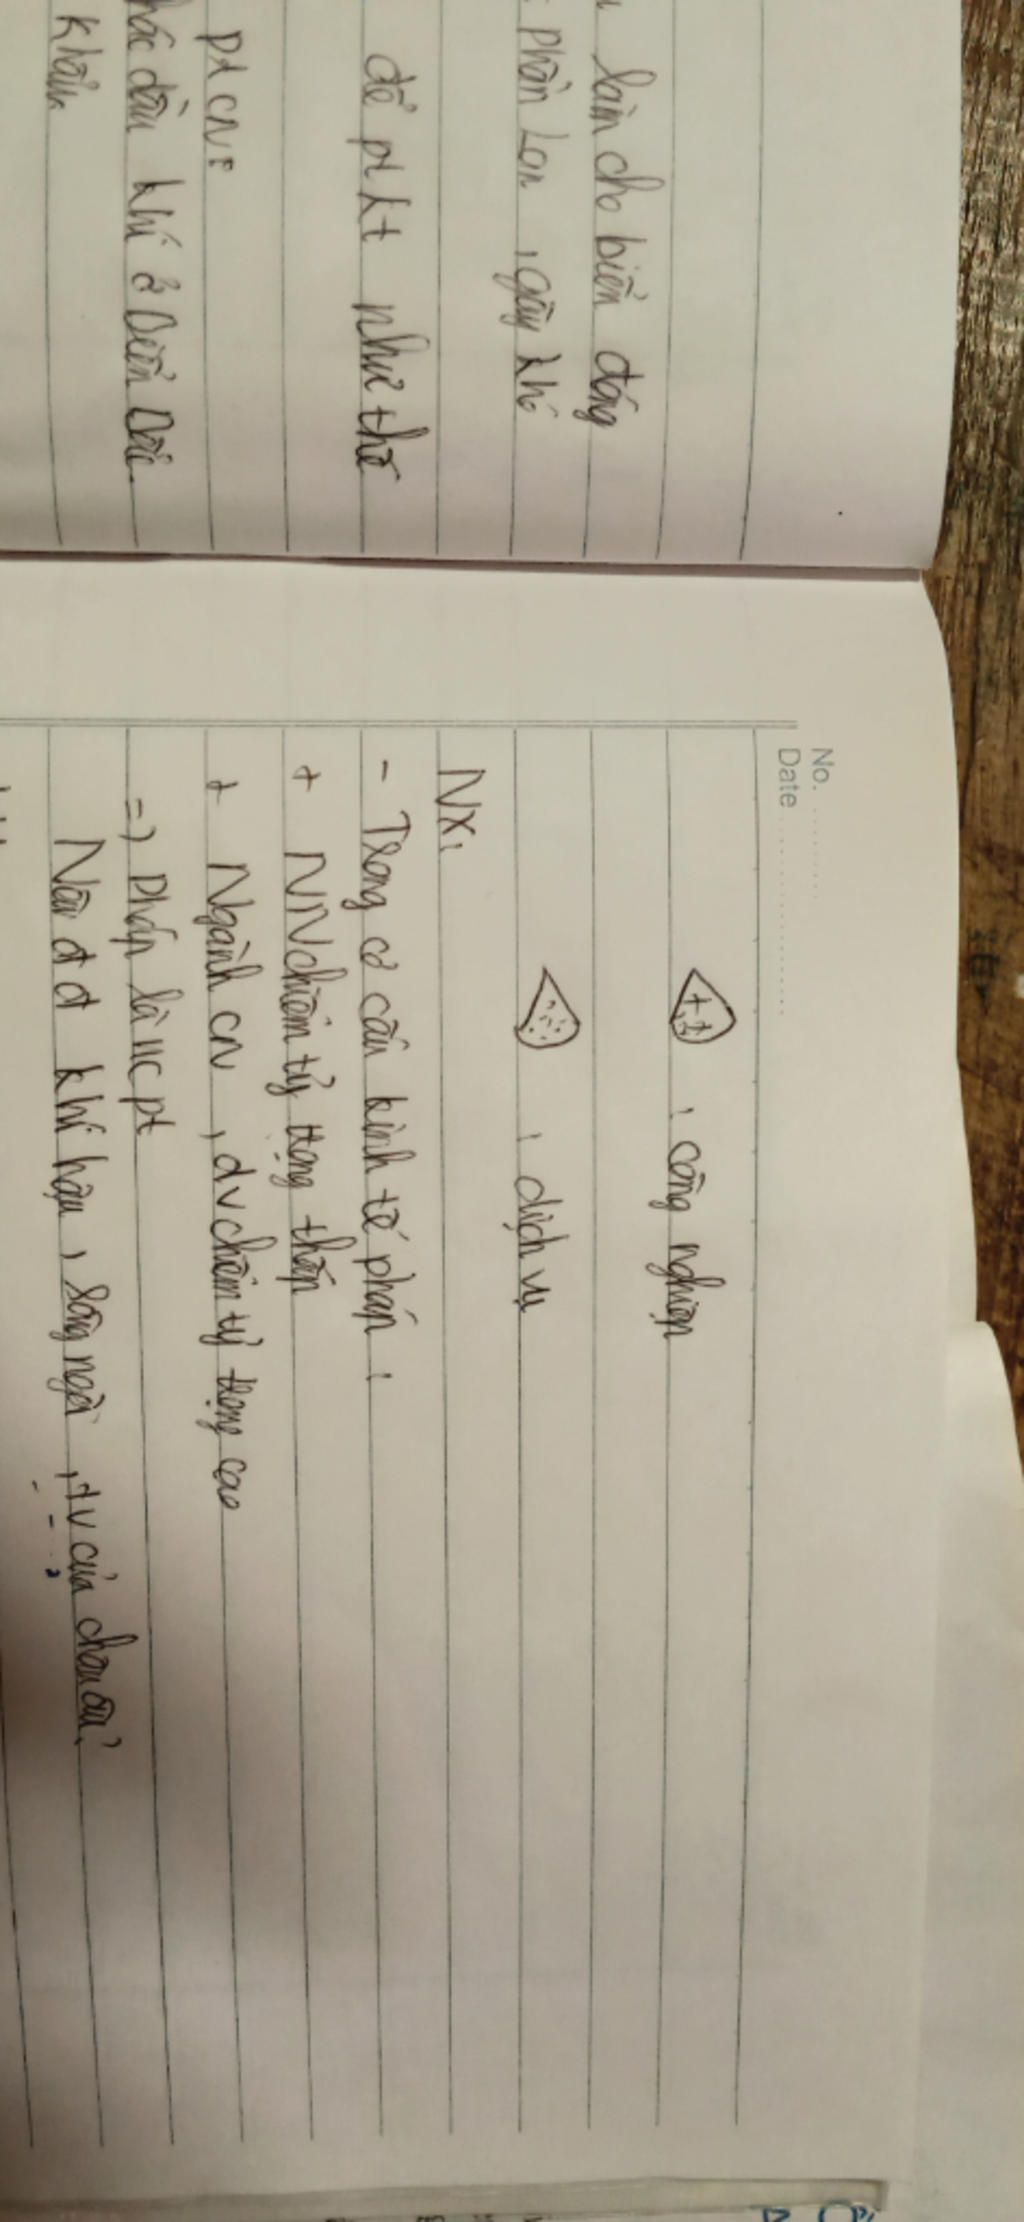 làm cho biển đóng
phần lớn, gây khó
để pt kt như thế
pt CN:
dầu khí ở Biển Bắc.
khẩu
No.
Date
: công nghiệp
: dịch vụ
NX:
- Trong cơ cấu kinh tế pháp :
+ NN chiếm tỷ trọng thấp
+ Ngành cn, dv chiếm tỷ trọng cao
=) pháp là nc pt
Nêu đđ khí hậu, sông ngòi, tv của châu âu?